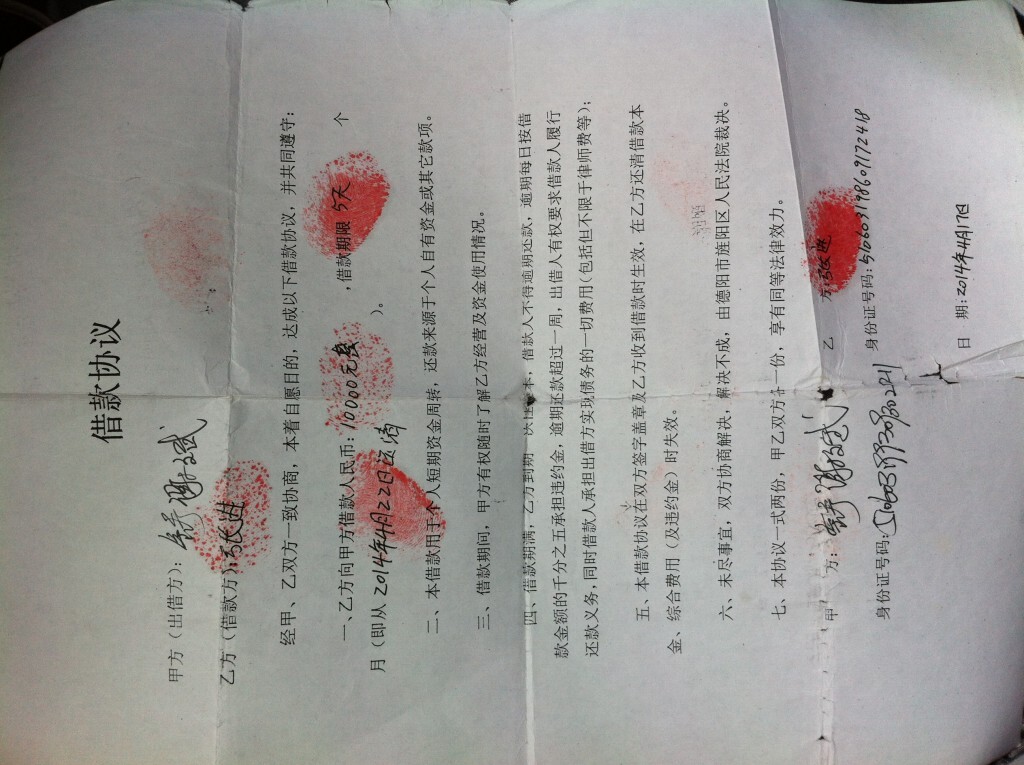 借款协议
甲方（出借方）：
乙方（借款方）：张进
经甲、乙双方一致协商，本着自愿目的，达成以下借款协议，并共同遵守：
一、乙方向甲方借款人民币：10000元整，借款期限 5天 个
月（即从 2014年4月22日还清 ）。
二、本借款用于个人短期资金周转，还款来源于个人自有资金或其它款项。
三、借款期间，甲方有权随时了解乙方经营及资金使用情况。
四、借款期满，乙方到期一次性还本，借款人不得逾期还款，逾期每日按借
款金额的千分之五承担违约金，逾期还款超过一周，出借人有权要求借款人履行
还款义务，同时借款人承担出借方实现债务的一切费用（包括但不限于律师费等）；
五、本借款协议在双方签字盖章及乙方收到借款时生效，在乙方还清借款本
金、综合费用（及违约金）时失效。
六、未尽事宜，双方协商解决，解决不成，由德阳市旌阳区人民法院裁决。
七、本协议一式两份，甲乙双方各一份，享有同等法律效力。
甲 方： 乙 方：张进
身份证号码： 身份证号码：510603198609172418
日 期：2014年4月17日